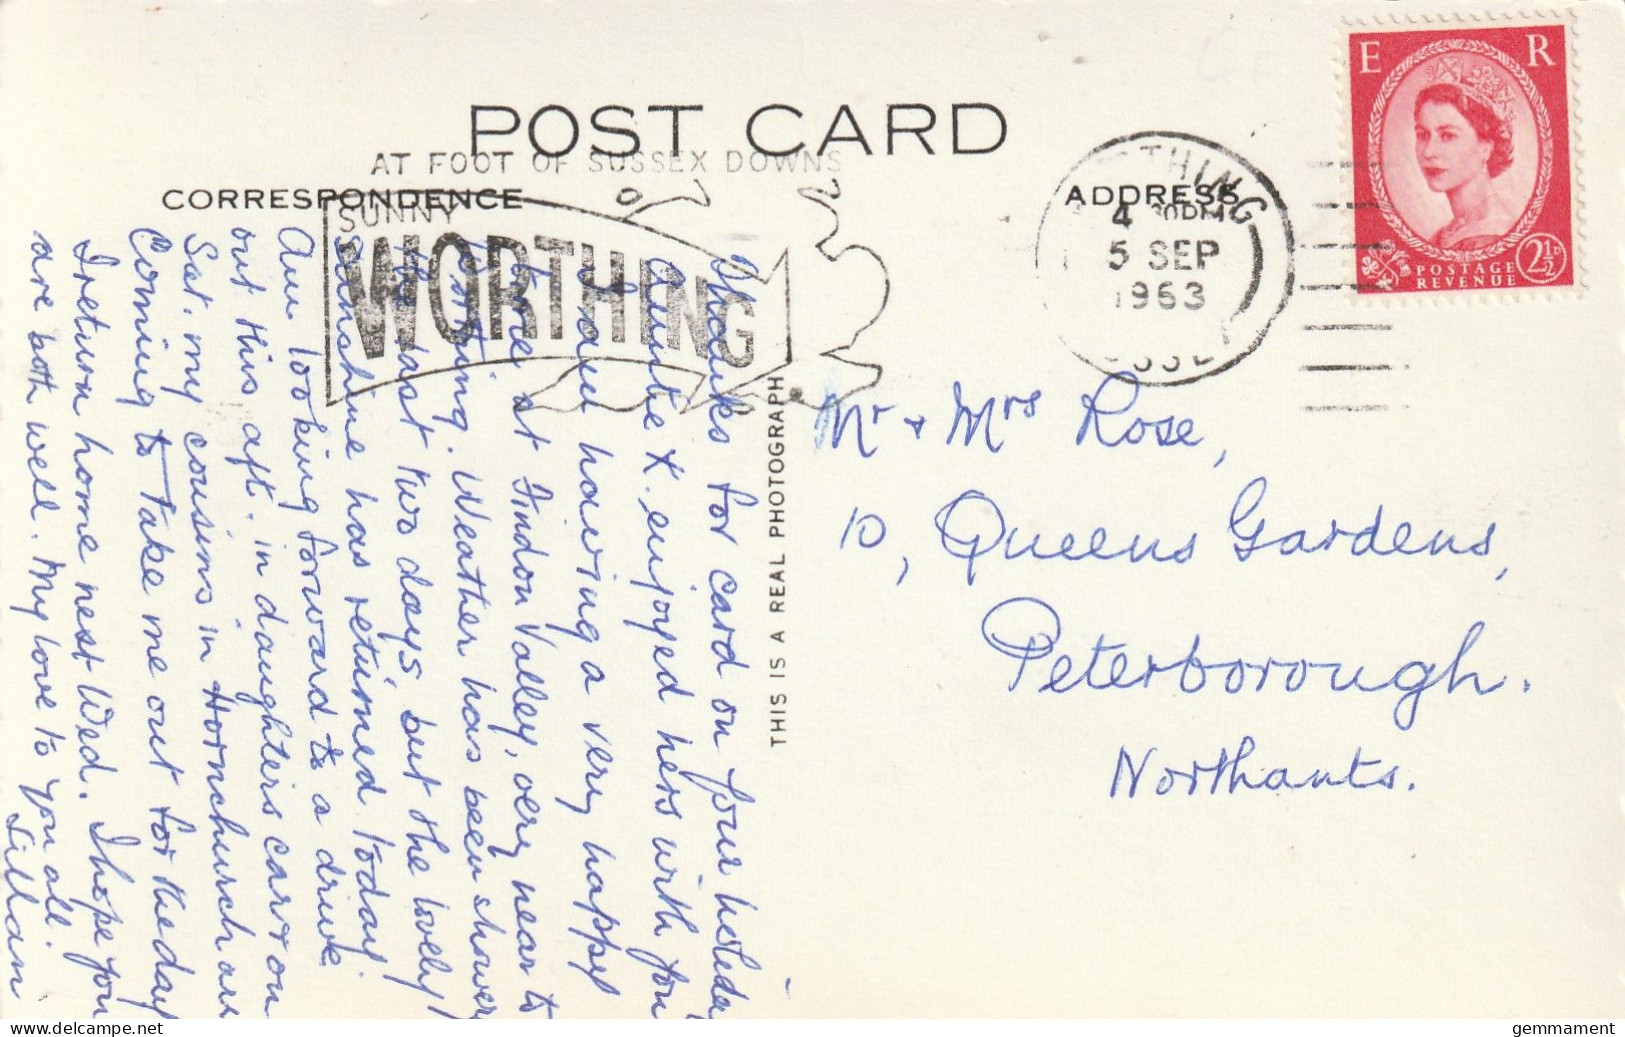 POST CARD
AT FOOT OF SUSSEX DOWNS
CORRESPONDENCE
SUNNY
WORTHING
ADDRESS
WORTHING
4 30PM
5 SEP
1963
SUSSEX
E R
POSTAGE
REVENUE
2½D
THIS IS A REAL PHOTOGRAPH
Thanks for card on your holiday
Auntie K. enjoyed hers with you
I am having a very happy
time at Findon Valley, very near to
Worthing. Weather has been showery
the last two days, but the lovely
sunshine has returned today.
Am looking forward to a drive
out this aft. in daughter's car & on
Sat. my cousins in Hornchurch are
Coming to take me out for the day
I return home next Wed. I hope you
are both well. My love to you all.
Lillian
Mr & Mrs Rose,
10, Queens Gardens,
Peterborough.
Northants.
gemmament